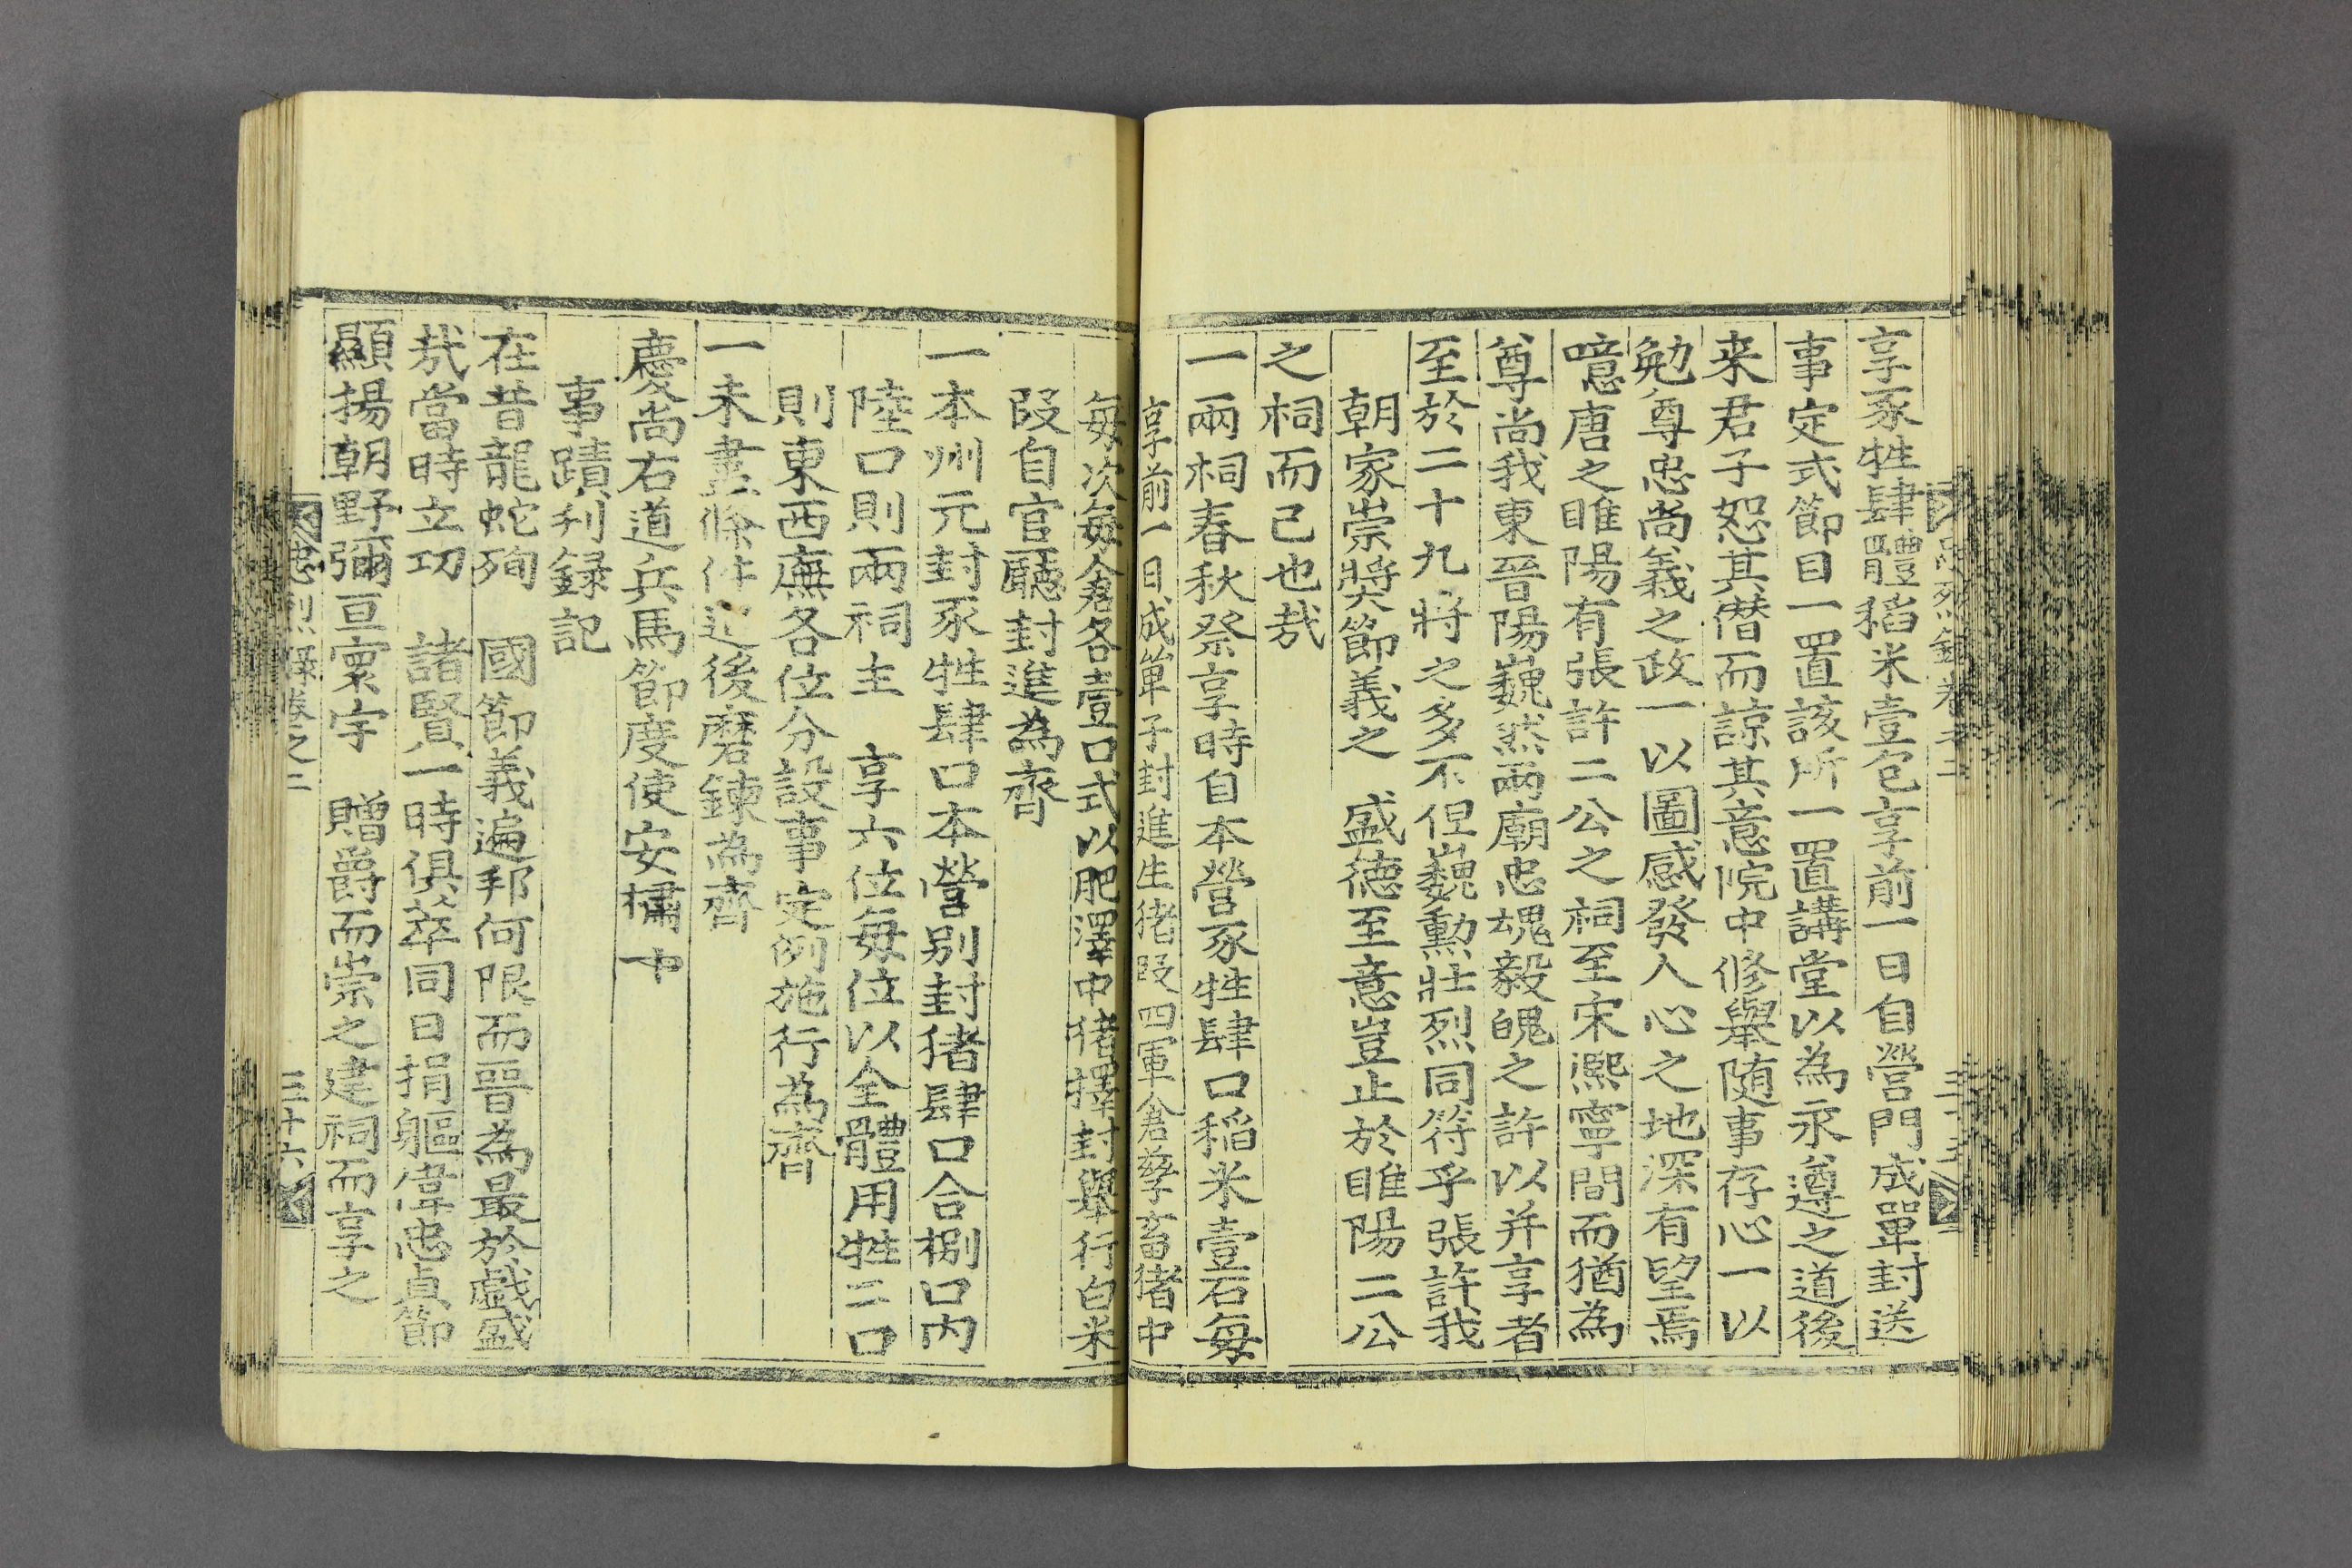 享豕牲肆體稻米壹包享前一日自營門成單封送
事定式節目一置該所一置講堂以為永遵之道後
来君子恕其僣而諒其意院中修舉随事存心一以
勉尊忠尚義之政一以圖感發人心之地深有望焉
噫唐之睢陽有張許二公之祠至宋凞寧間而猶為
尊尚我東晉陽巍然兩廟忠魂毅魄之許以并享者
至於二十九將之多不但巍勳壯烈同符乎張許我
朝家崇奬節義之 盛德至意豈止於睢陽二公
之祠而已也哉
一兩祠春秋祭享時自本營豕牲肆口稻米壹石每
享前一日成單子封進生猪段四軍倉孳畜猪中
每次每倉各壹口式以肥澤中猪擇封舉行白米
段自官廳封進為齊
一本州元封豕牲肆口本營别封猪肆口合捌口内
陸口則兩祠主 享六位每位以全體用牲二口
則東西廡各位分設事定例施行為齊
一未盡條件追後磨鍊為齊
慶尚右道兵馬節度使安橚
事蹟刊録記
在昔龍蛇殉 國節義遍邦何限而晉為最於戲盛
哉當時立功 諸賢一時俱卒同日捐軀偉忠貞節
顯揚朝野彌亘寰宇 贈爵而崇之建祠而享之
忠烈録卷之二
三十六